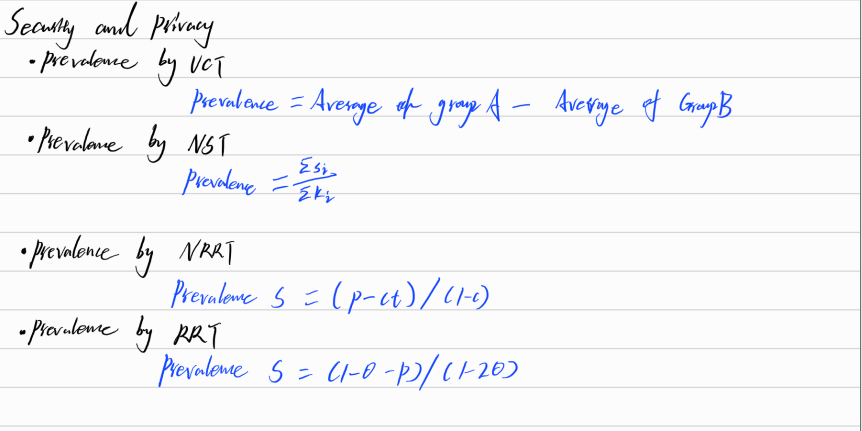 Security and privacy
• prevalence by UCT
prevalence = Average of group A - Average of Group B
• prevalence by NST
prevalence = Σsi / Σki
• prevalence by NRRT
prevalence s = (p-ct)/(1-c)
• prevalence by RRT
prevalence s = (1-θ-p)/(1-2θ)